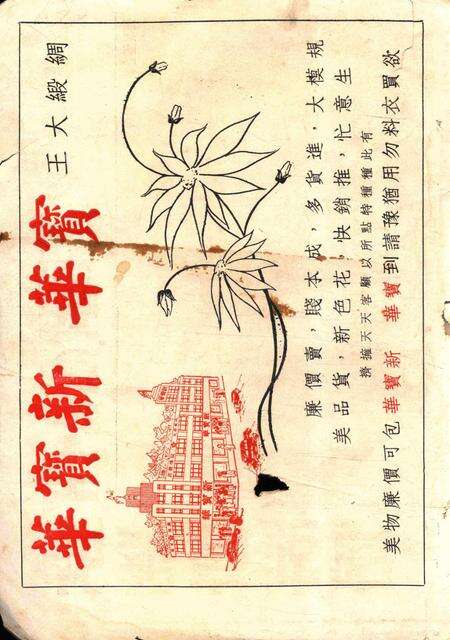 綢緞大王 寶華 新寶華
新寶華
規模大，進貨多，成本賤，賣價廉
生意忙，推銷快，花色新，貨品美
有此種種特點所以顧客天天擁擠
欲買衣料勿用猶豫請到寶華 新寶華包可價廉物美